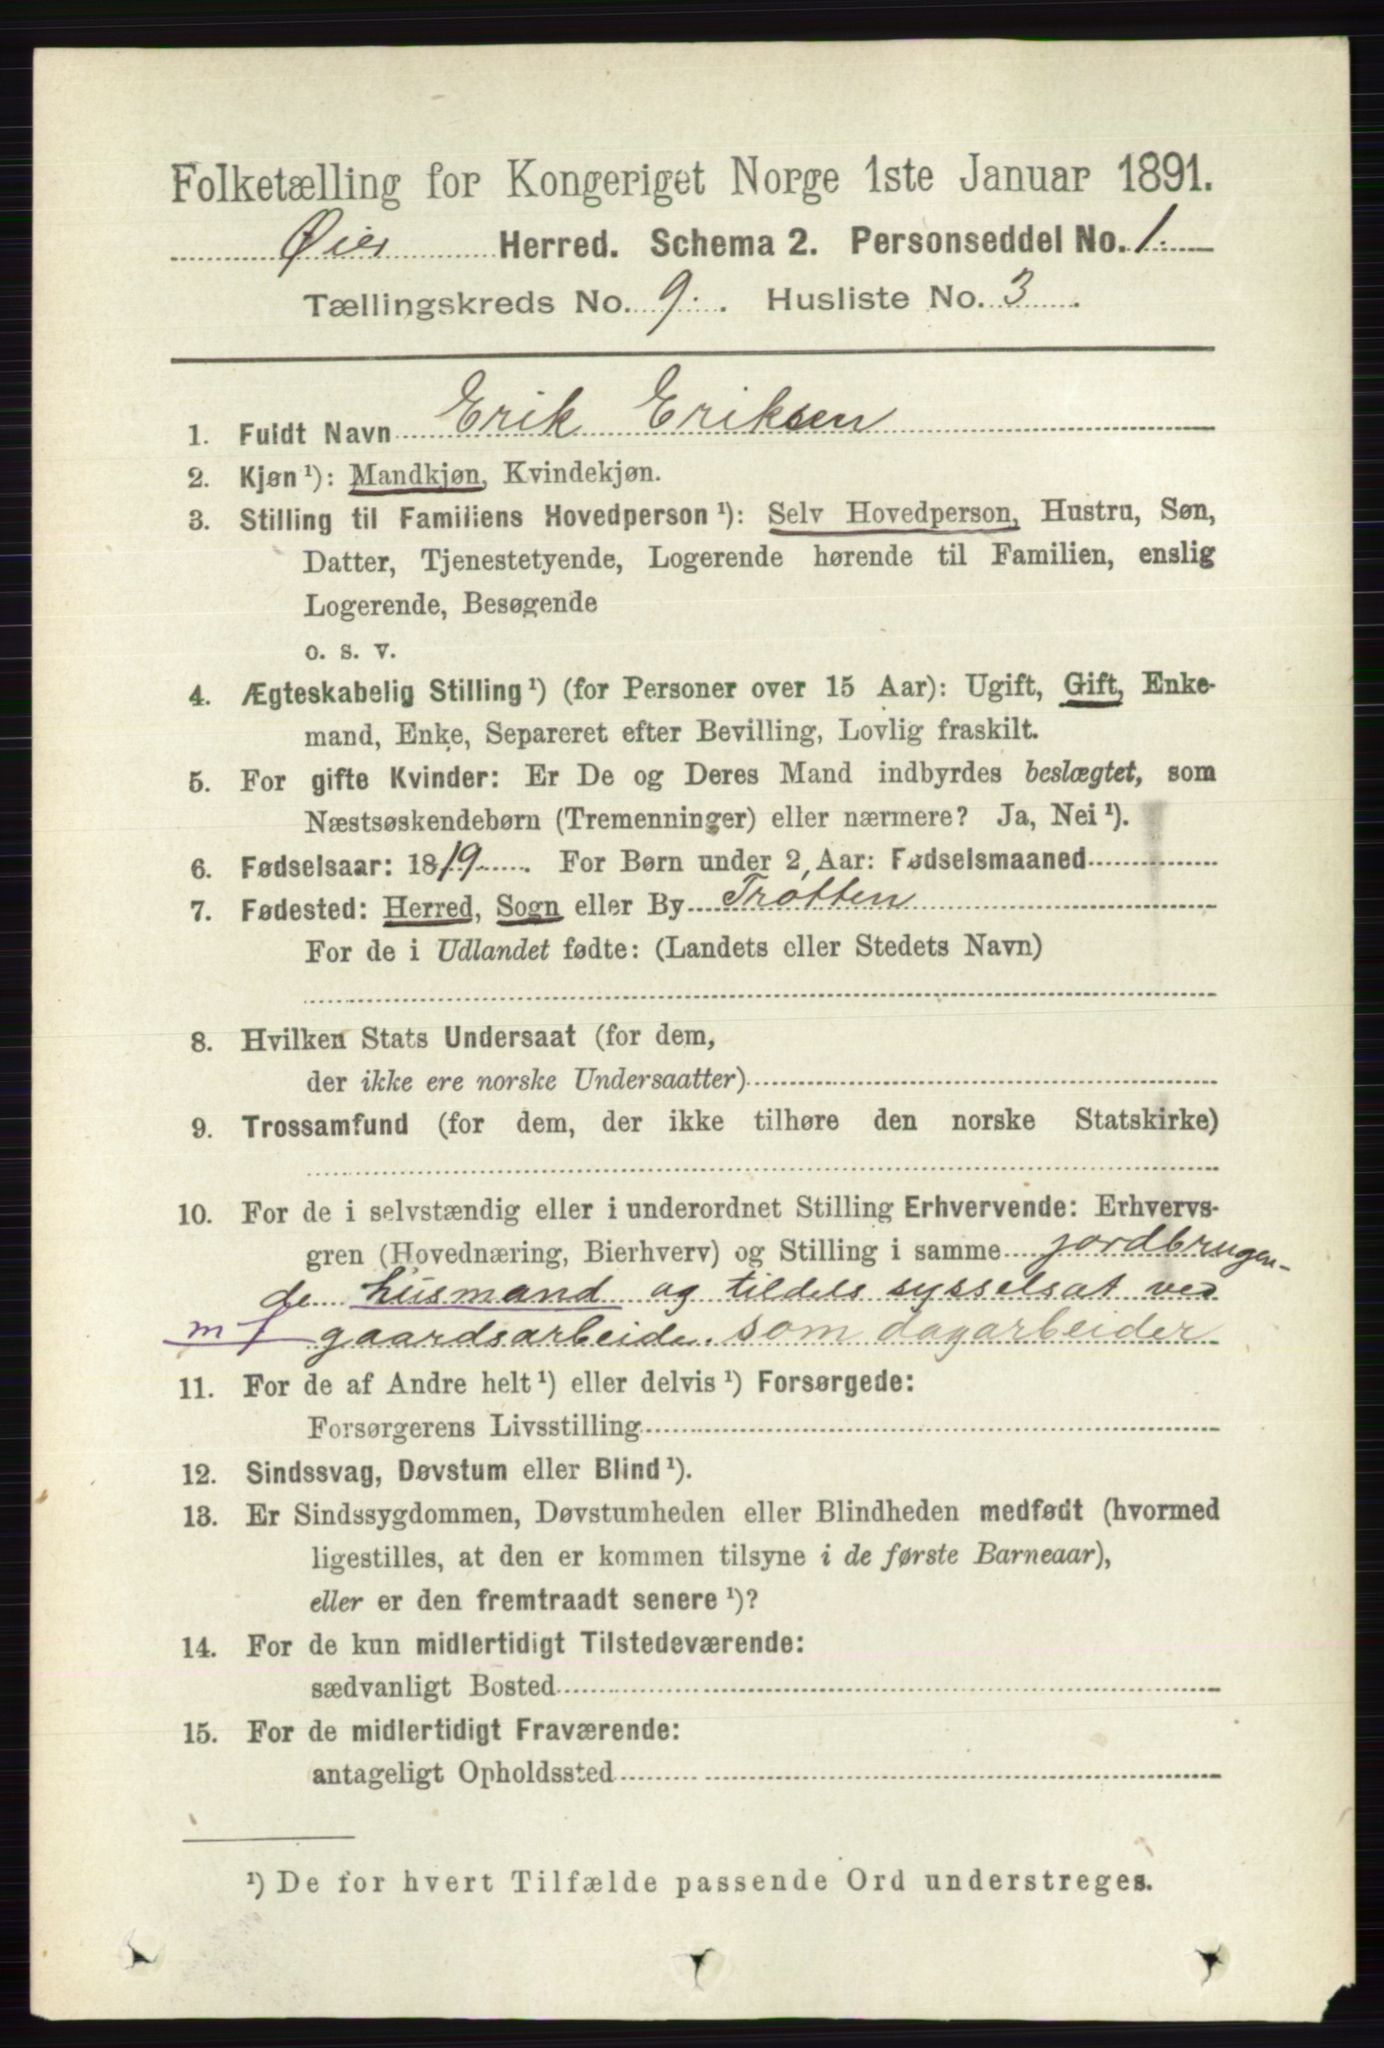 Folketælling for Kongeriget Norge 1ste Januar 1891.
Øier Herred. Schema 2. Personseddel No. 1.
Tællingskreds No. 9. Husliste No. 3.
1. Fuldt Navn Erik Eriksen
2. Kjøn ¹): Mandkjøn, Kvindekjøn.
3. Stilling til Familiens Hovedperson ¹): Selv Hovedperson, Hustru, Søn,
Datter, Tjenestetyende, Logerende hørende til Familien, enslig
Logerende, Besøgende
o. s. v.
4. Ægteskabelig Stilling ¹) (for Personer over 15 Aar): Ugift, Gift, Enke-
mand, Enke, Separeret efter Bevilling, Lovlig fraskilt.
5. For gifte Kvinder: Er De og Deres Mand indbyrdes beslægtet, som
Næstsøskendebørn (Tremenninger) eller nærmere? Ja, Nei ¹).
6. Fødselsaar: 1819. For Børn under 2 Aar: Fødselsmaaned
7. Fødested: Herred, Sogn eller By Trotten
For de i Udlandet fødte: (Landets eller Stedets Navn)
8. Hvilken Stats Undersaat (for dem,
der ikke ere norske Undersaatter)
9. Trossamfund (for dem, der ikke tilhøre den norske Statskirke)
10. For de i selvstændig eller i underordnet Stilling Erhvervende: Erhvervs-
gren (Hovednæring, Bierhverv) og Stilling i samme jordbrugen-
de husmand og tildels sysselsat ved
m f gaardsarbeide. som dagarbeider
11. For de af Andre helt ¹) eller delvis ¹) Forsørgede:
Forsørgerens Livsstilling
12. Sindssvag, Døvstum eller Blind ¹).
13. Er Sindssygdommen, Døvstumheden eller Blindheden medfødt (hvormed
ligestilles, at den er kommen tilsyne i de første Barneaar),
eller er den fremtraadt senere ¹)?
14. For de kun midlertidigt Tilstedeværende:
sædvanligt Bosted
15. For de midlertidigt Fraværende:
antageligt Opholdssted
¹) De for hvert Tilfælde passende Ord understreges.